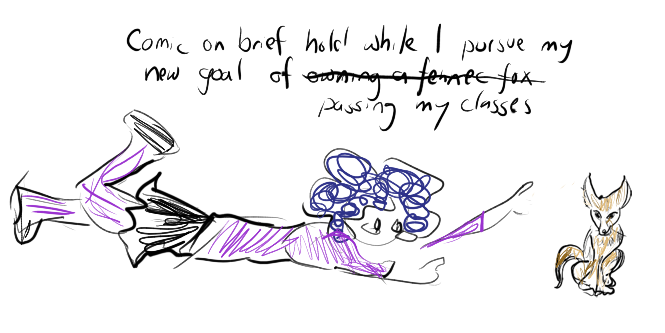 Comic on brief hold while I pursue my
new goal of owning a fennec fox
passing my classes